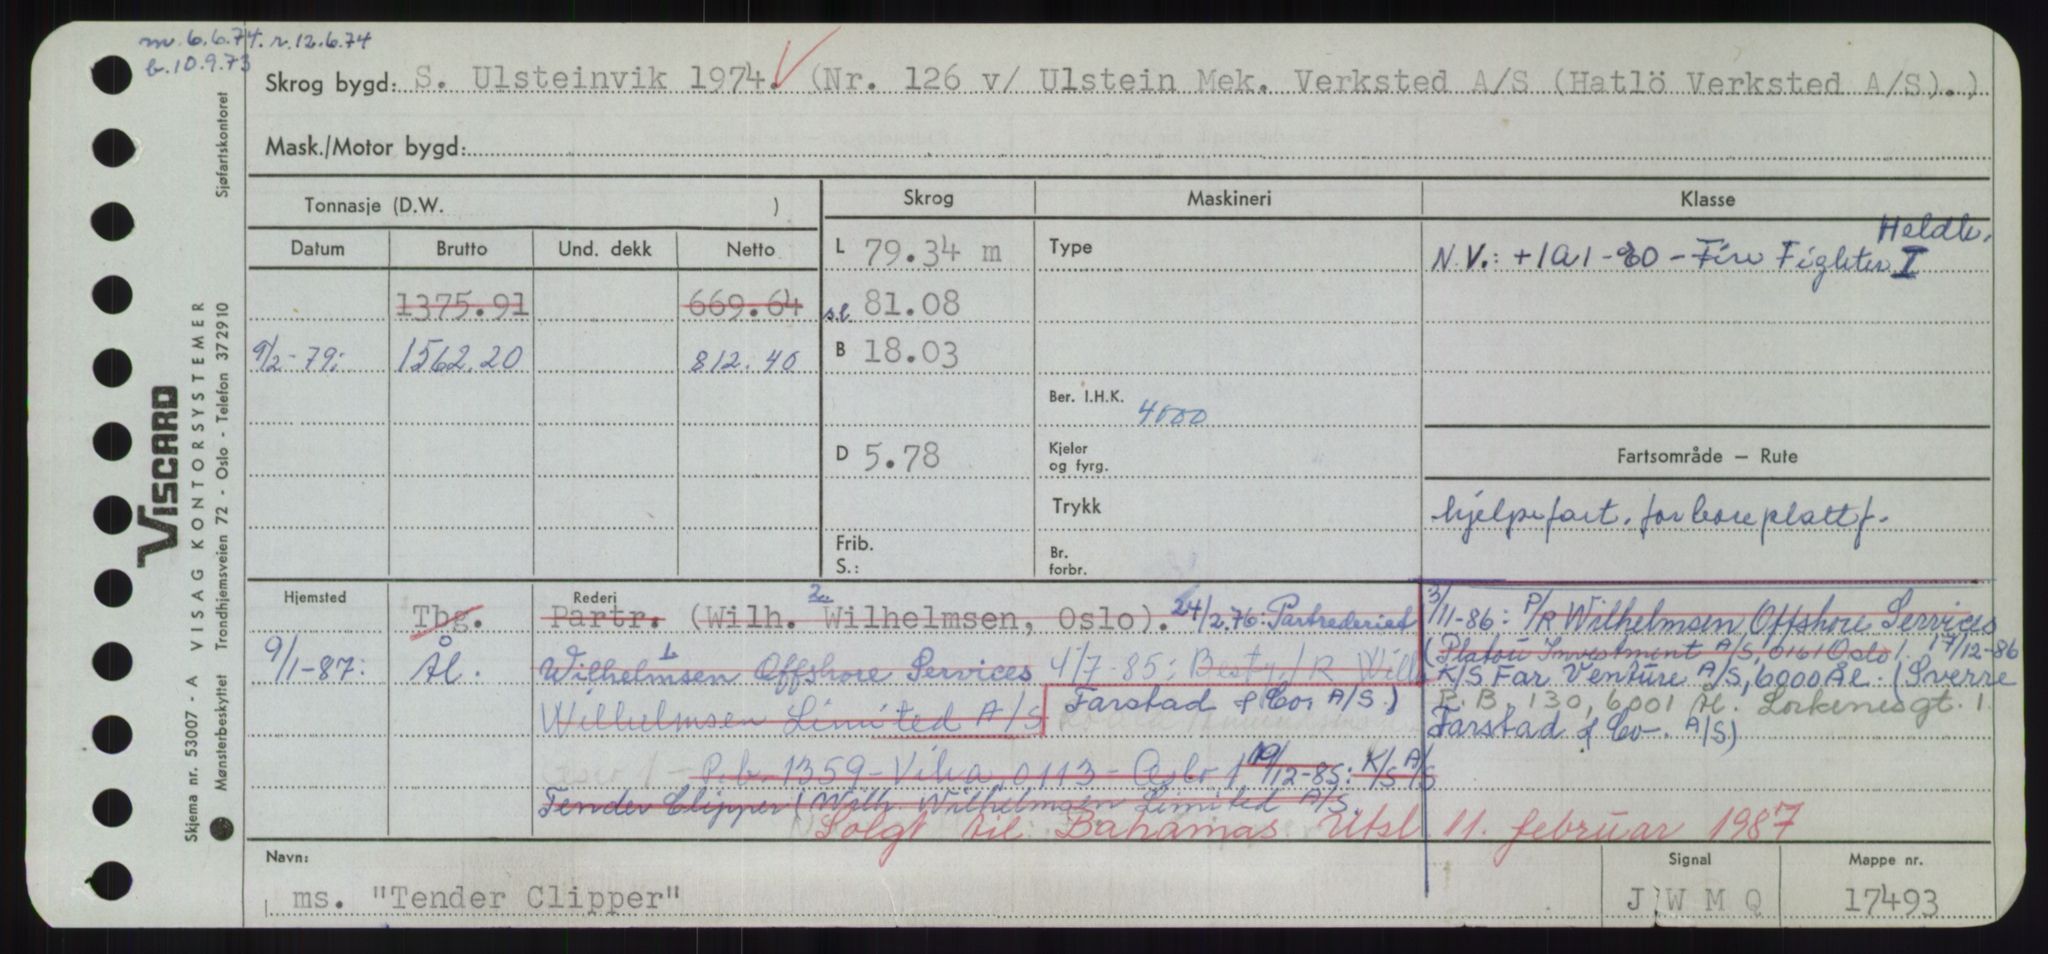 m. 6.6.74. r. 12.6.74
b. 10.9.73
Skrog bygd: S. Ulsteinvik 1974. (Nr. 126 v/ Ulstein Mek. Verksted A/S (Hatlö Verksted A/S).)
Mask./Motor bygd:
Tonnasje (D.W. )
Skrog
Maskineri
Klasse
Datum
Brutto
Und. dekk
Netto
L 79.34 m
Type
N.V.: +1A1-80 - Fire Fighter I
1375.91
669.64
s.l. 81.08
9/2-79:
1562.20
812.40
B 18.03
Ber. I.H.K. 4000
D 5.78
Kjeler
og fyrg.
Fartsområde — Rute
Trykk
hjelpefart. for boreplattf.
Frib.
S.:
Br.
forbr.
Hjemsted
Tbg.
9/1-87: Ål.
Rederi
Partr. (Wilh. Wilhelmsen, Oslo). 24/2.76. Partrederiet
Wilhelmsen Offshore Services 4/7-85: Besty./R Wilh
Wilhelmsen Limited A/S Farstad & Co. A/S.)
P.b. 1359 - Vika, 0113 - Oslo 1 19/12-85: K/S A/S
Tender Clipper (Wilh. Wilhelmsen Limited A/S.
3/11-86: P/R Wilhelmsen Offshore Services
(Platou Investment A/S, 0161 Oslo 1. 17/12-86
K/S Far Venture A/S, 6000 Ål. (Sverre
P.B. 130, 6001 Ål.
Farstad & Co. A/S)
Solgt til Bahamas Utsl. 11. februar 1987
Navn:
ms. "Tender Clipper"
Signal
J W M Q
Mappe nr.
17493
Sjøfartskontoret
VISCARD
VISAG KONTORSYSTEMER
Trondhjemsveien 72 - Oslo - Telefon 372910
Skjema nr. 53007 - A
Mønsterbeskyttet